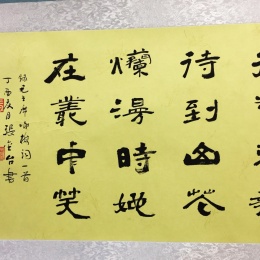 待到山花
爛漫時她
在叢中笑
毛主席咏梅词一首
丁酉夏月張台書